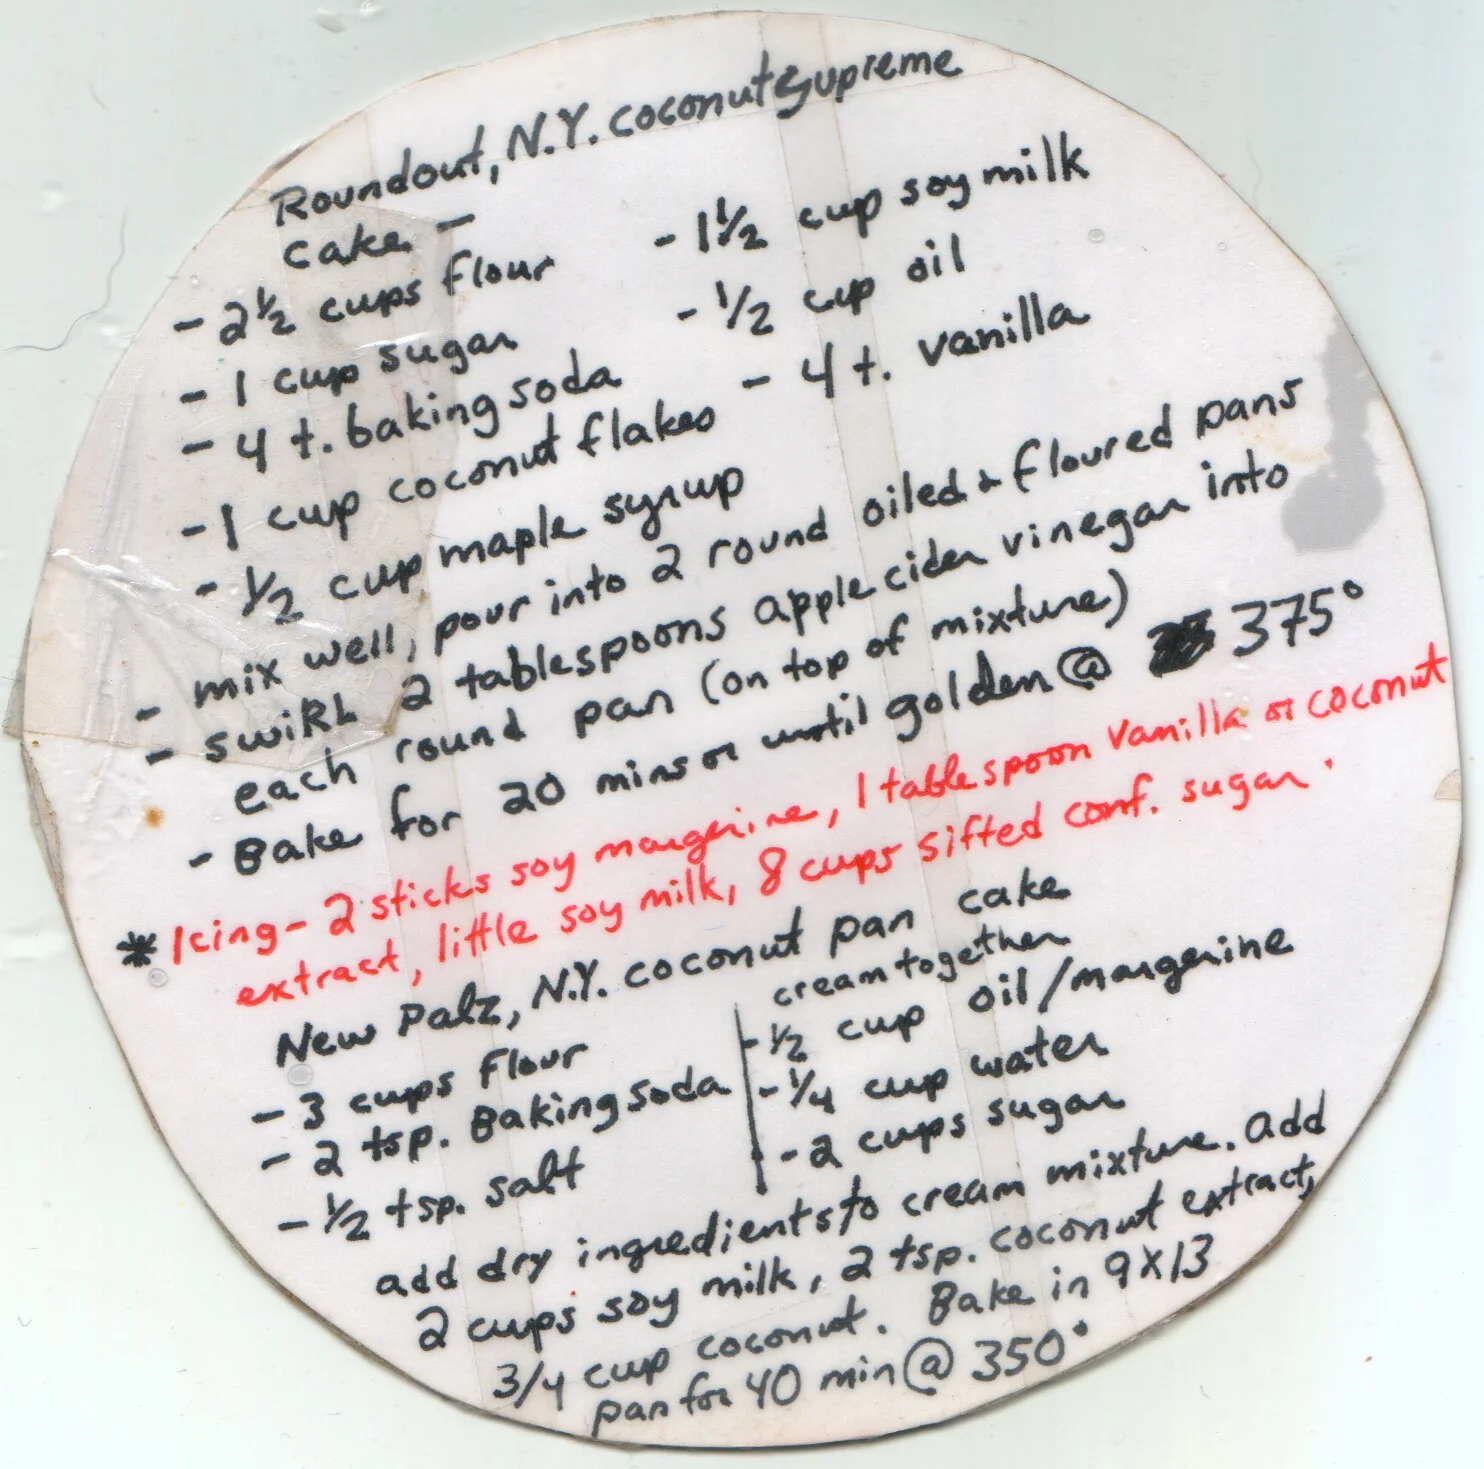 Roundout, N.Y. coconut supreme
cake -
- 2 1/2 cups flour
- 1 cup sugar
- 4 t. baking soda
- 1 cup coconut flakes
- 1/2 cup maple syrup
- 1 1/2 cup soy milk
- 1/2 cup oil
- 4 t. vanilla
- mix well, pour into 2 round oiled & floured pans
- swirl 2 tablespoons apple cider vinegar into
each round pan (on top of mixture)
- Bake for 20 mins or until golden @ 375°
* Icing - 2 sticks soy margerine, 1 tablespoon vanilla or coconut
extract, little soy milk, 8 cups sifted conf. sugar.
New Palz, N.Y. coconut pan cake
- 3 cups flour
- 2 tsp. Baking soda
- 1/2 tsp. salt
cream together
- 1/2 cup oil/margerine
- 1/4 cup water
- 2 cups sugar
add dry ingredients to cream mixture. add
2 cups soy milk, 2 tsp. coconut extract,
3/4 cup coconut. Bake in 9X13
pan for 40 min @ 350°